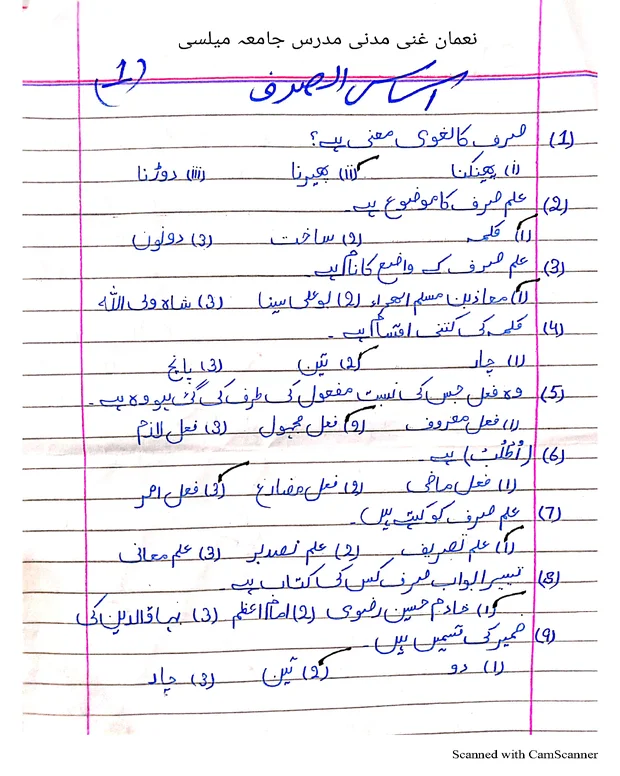 نعمان غنی مدنی مدرس جامعہ میلسی
(1)
اساس الصرف
(1) صرف کا لغوی معنی ہے؟
(i) پھینکنا (ii) پھیرنا (iii) دوڑنا
(2) علم صرف کا موضوع ہے۔
(1) کلمہ (2) ساخت (3) دونوں
(3) علم صرف کے واضع کا نام ہے۔
(1) معاذ بن مسلم الھراء (2) بو علی سینا (3) شاہ ولی اللہ
(4) کلمہ کی کتنی اقسام ہے۔
(1) چار (2) تین (3) پانچ
(5) وہ فعل جس کی نسبت مفعول کی طرف کی گئی ہو وہ ہے۔
(1) فعل معروف (2) فعل مجہول (3) فعل لازم
(6) (اُطْلُبْ) ہے۔
(1) فعل ماضی (2) فعل مضارع (3) فعل امر
(7) علم صرف کو کہتے ہیں۔
(1) علم تصریف (2) علم تصدیر (3) علم معانی
(8) تیسیر ابواب صرف کس کی کتاب ہے۔
(1) خادم حسین رضوی (2) امام اعظم (3) بہاؤالدین کی
(9) ضمیر کی قسمیں ہیں۔
(1) دو (2) تین (3) چار
Scanned with CamScanner